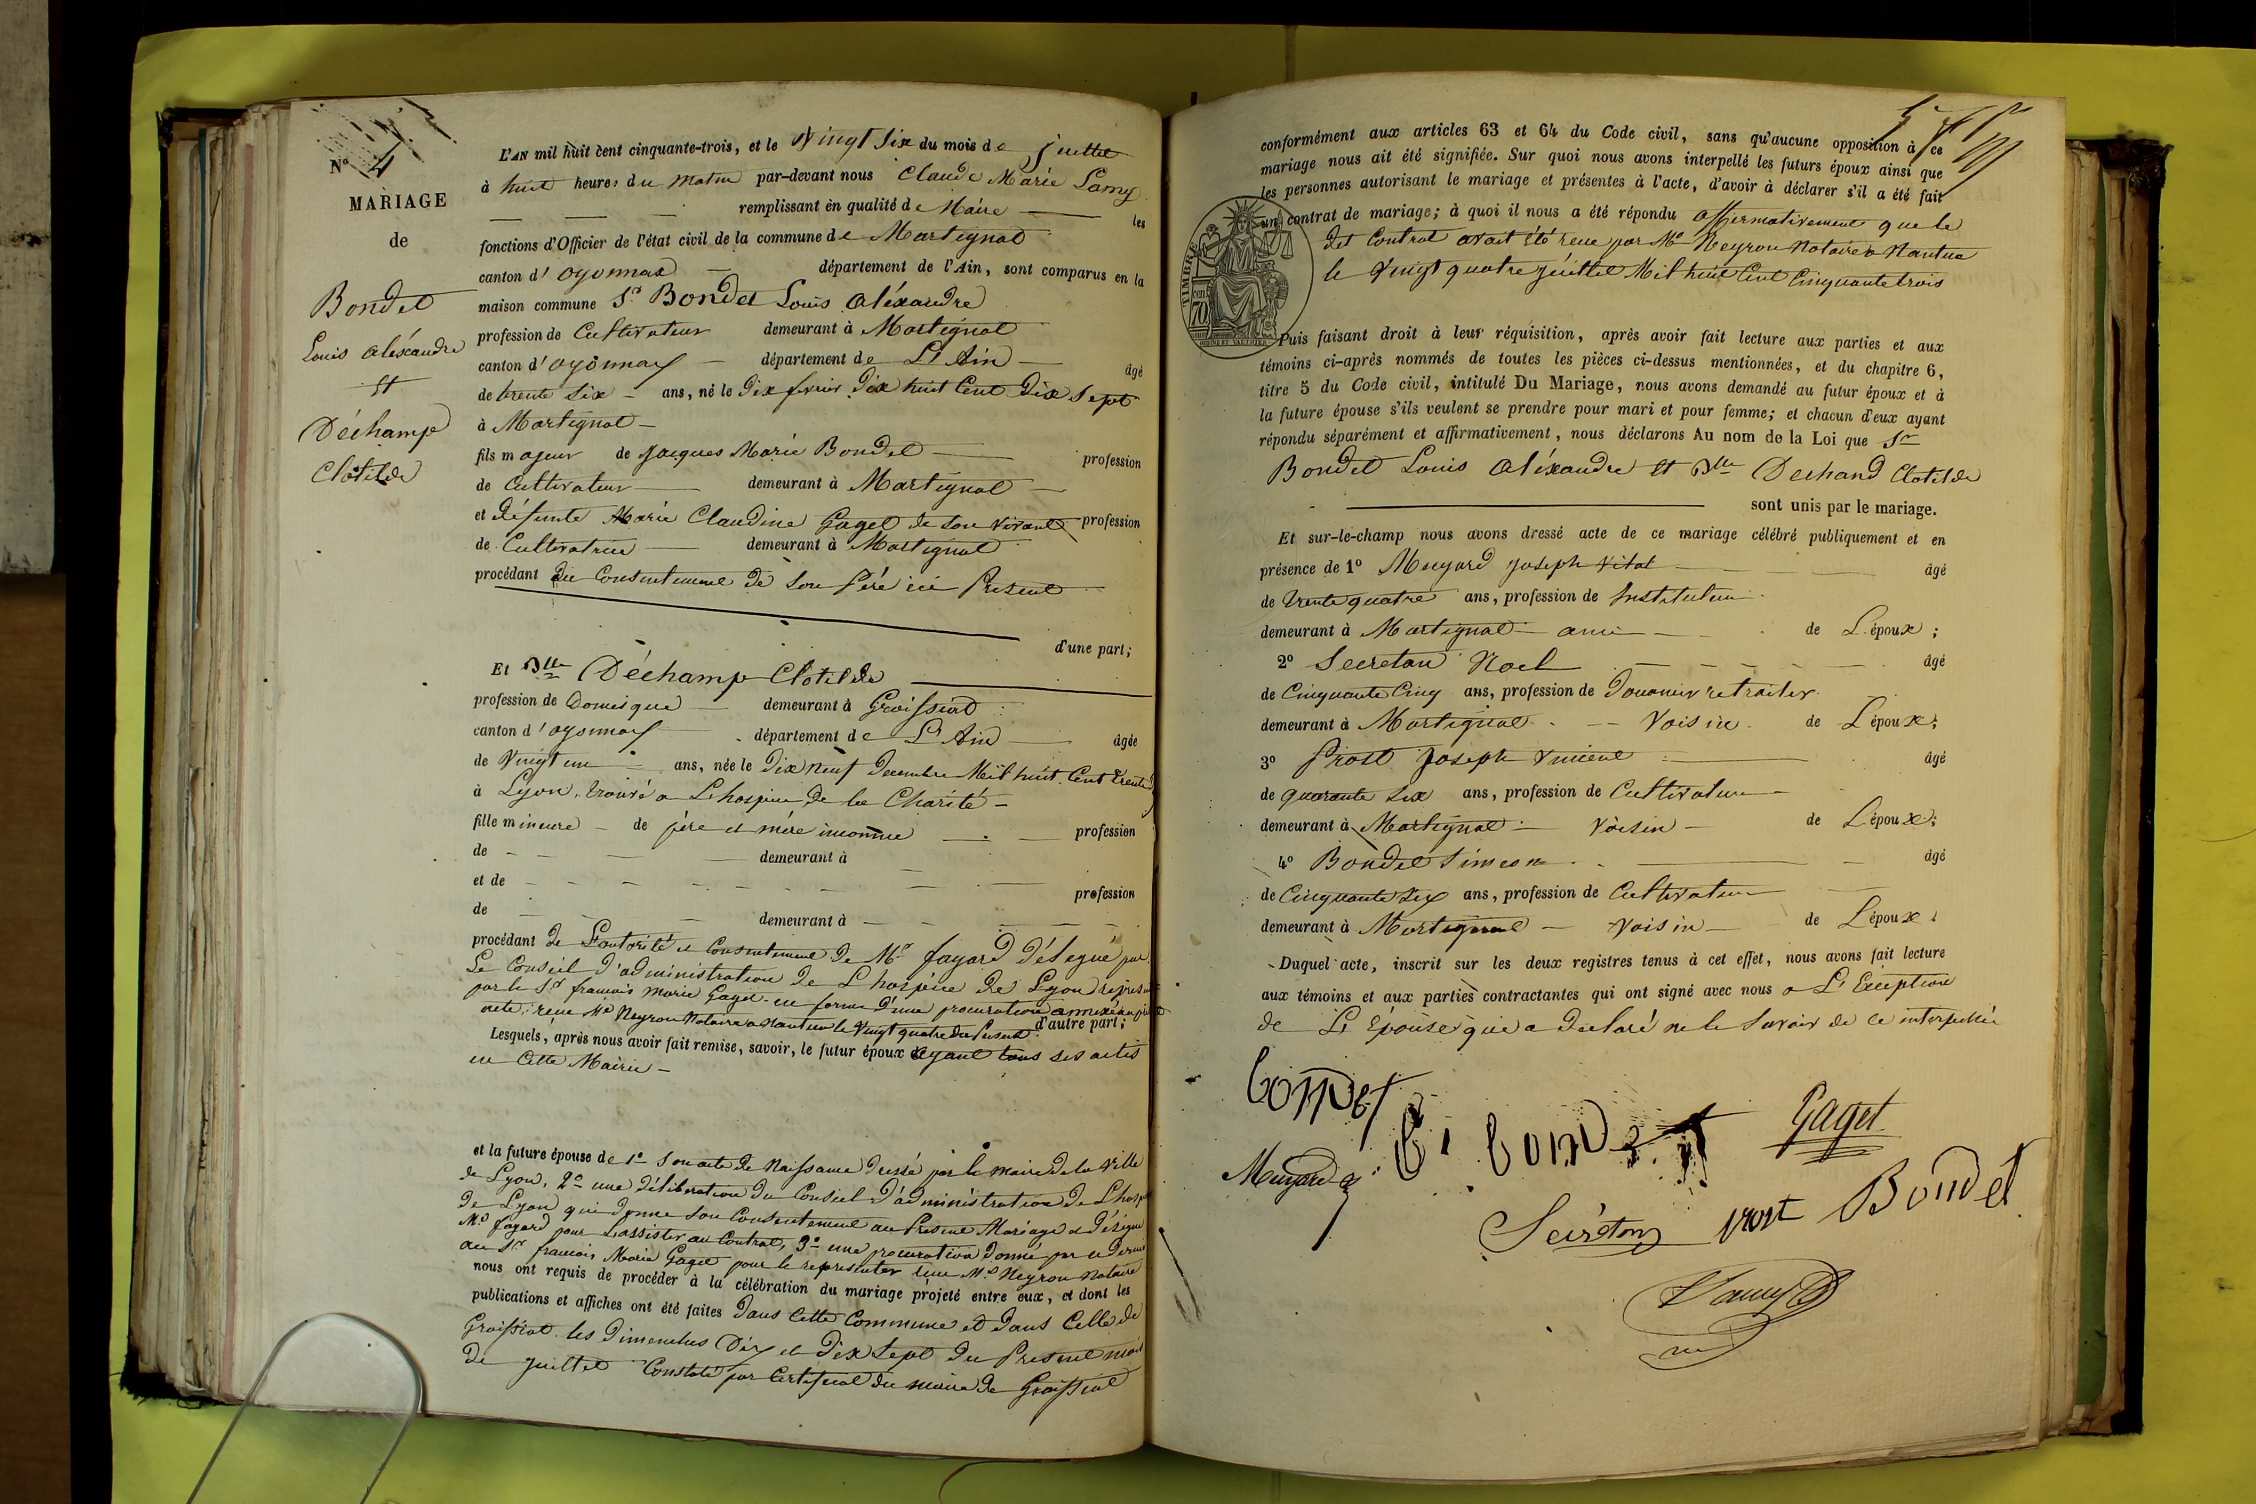 N° 4
MARIAGE
de
Bondet
Louis Aléxandre
et
Déchamp
Clotilde
L'AN mil huit cent cinquante-trois, et le Vingt Six du mois de Juillet
à huit heures du Matin par-devant nous Claude Marie Lamy
remplissant en qualité de Maire les
fonctions d'Officier de l'état civil de la commune de Martignat
canton d'oyonnax département de l'Ain, sont comparus en la
maison commune Sr Bondet Louis Aléxandre
profession de Cultivateur demeurant à Martignat
canton d'oyonnax département de L'Ain âgé
de trente Six ans, né le Dix fevrier Dix huit Cent Dix Sept
à Martignat
fils majeur de Jacques Marie Bondet profession
de Cultivateur demeurant à Martignat
et Défunte Marie Claudine Gaget de son vivant profession
de Cultivatrice demeurant à Martignat
procédant du Consentement de son Père ici Présent
d'une part;
Et Dlle Déchamp Clotilde
profession de Domesque demeurant à Groissiat
canton d'oyonnax département de L'Ain âgée
de Vingt un ans, née le Dix neuf Decembre Mil huit Cent trente
à Lyon, trouvé a L'hospice de la Charité
fille mineure de père et mère inconnue profession
de demeurant à
et de profession
de demeurant à
procédant de L'autorité et Consentement de Mr fayard Délegué par
Le Conseil D'administration de L'hospice de Lyon représenté
par le Sr francois Marie Gaget en forme D'une procuration annexée au présent
acte, reçue Me Neyron Notaire a Nantua le Vingt quatre du Présent d'autre part;
Lesquels, après nous avoir fait remise, savoir, le futur époux ayant tous ses actes
en Cette Mairie
et la future épouse de 1° Son acte de Naissance Dressé par le maire de la Ville
de Lyon, 2° une Délibération du Conseil D'administration de L'hospice
de Lyon qui Donne son Consentement au Présent Mariage et Désigne
Mr fayard pour L'assister au Contrat, 3° une procuration Donnée par ce Dernier
au Sr francois Marie Gaget pour le représenter reçue Me Neyron Notaire
nous ont requis de procéder à la célébration du mariage projeté entre eux, et dont les
publications et affiches ont été faites Dans Cette Commune et Dans Celle de
Groissiat les Dimenches Dix et Dix Sept Du Present mois
De Juillet Constaté par Certificat du maire de Groissiat
conformément aux articles 63 et 64 du Code civil, sans qu'aucune opposition à ce
mariage nous ait été signifiée. Sur quoi nous avons interpellé les futurs époux ainsi que
les personnes autorisant le mariage et présentes à l'acte, d'avoir à déclarer s'il a été fait
un contrat de mariage; à quoi il nous a été répondu affirmativement que le
dit Contrat avait été reçu par Me Neyron Notaire à Nantua
le Vingt quatre Juillet Mil huit Cent Cinquante trois
TIMBRE
70
Puis faisant droit à leur réquisition, après avoir fait lecture aux parties et aux
témoins ci-après nommés de toutes les pièces ci-dessus mentionnées, et du chapitre 6,
titre 5 du Code civil, intitulé Du Mariage, nous avons demandé au futur époux et à
la future épouse s'ils veulent se prendre pour mari et pour femme; et chacun d'eux ayant
répondu séparément et affirmativement, nous déclarons Au nom de la Loi que Sr
Bondet Louis Aléxandre et Dlle Dechand Clotilde
sont unis par le mariage.
Et sur-le-champ nous avons dressé acte de ce mariage célébré publiquement et en
présence de 1° Muyard Joseph Vital âgé
de trente quatre ans, profession de Instituteur
demeurant à Martignat ami de L'époux;
2° Secretan Noel âgé
de Cinquante Cinq ans, profession de Douanier retraiter
demeurant à Martignat Voisin de L'époux;
3° Prost Joseph Vincent âgé
de quarante Six ans, profession de Cultivateur
demeurant à Martignat Voisin de L'époux;
4° Bondet Simeon âgé
de Cinquante Six ans, profession de Cultivateur
demeurant à Martignat Voisin de L'époux.
Duquel acte, inscrit sur les deux registres tenus à cet effet, nous avons fait lecture
aux témoins et aux parties contractantes qui ont signé avec nous a L'Exception
de L'Epouse qui a Declaré ne le Savoir de ce interpellée
bonDet
bonDet
Gaget
Muyard
Secrétan
prost
Bondet
Lamy